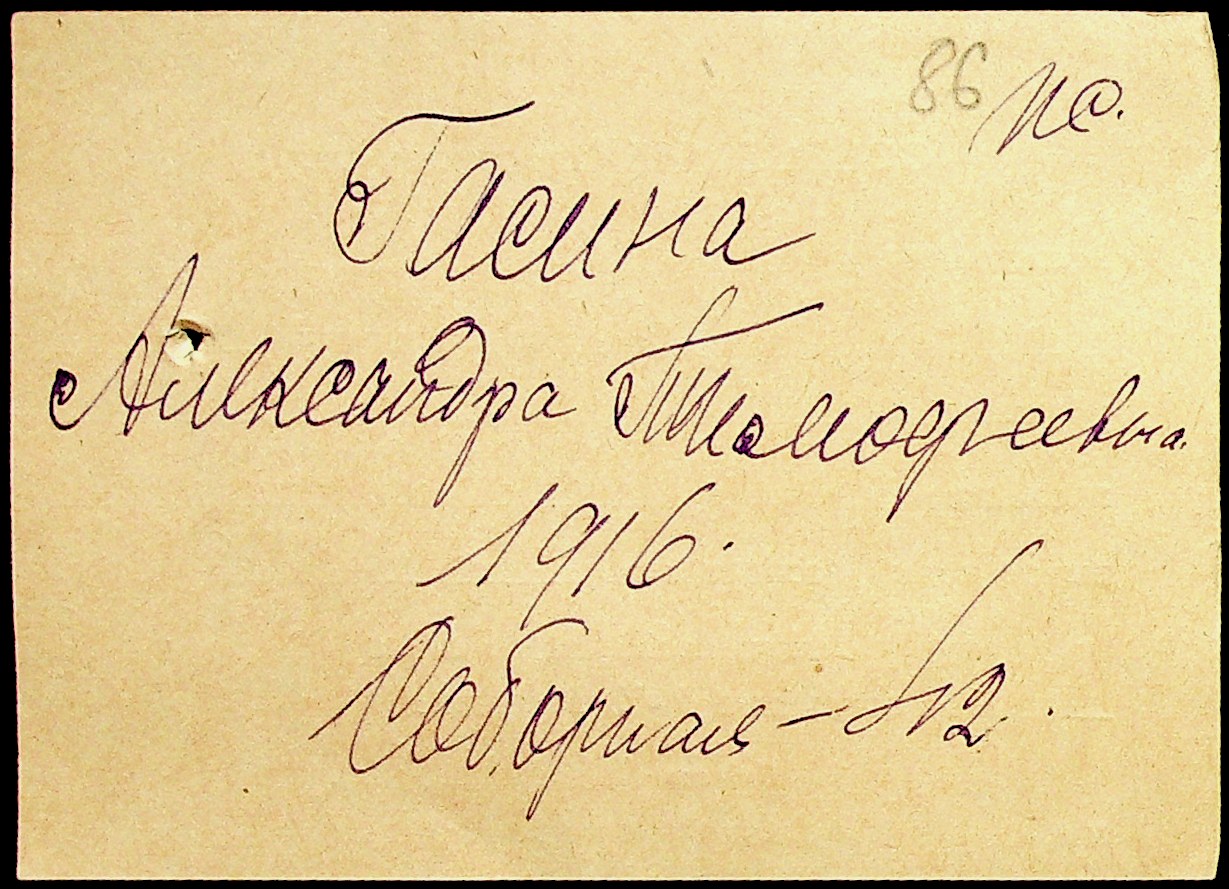 86
Гасина
Александра Тимофеевна.
1916.
Соборная –